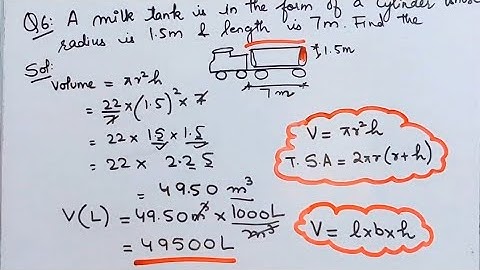 Q6: A milk tank is in the form of a cylinder whose
radius is 1.5m & length is 7m. Find the
Sol:
Volume = πr²h
1.5m
7m
= 22/7 × (1.5)² × 7
= 22 × 1.5 × 1.5
= 22 × 2.25
= 49.50 m³
V(L) = 49.50m³ × 1000L/m³
= 49500L
V = πr²h
T.S.A = 2πr(r+h)
V = l×b×h